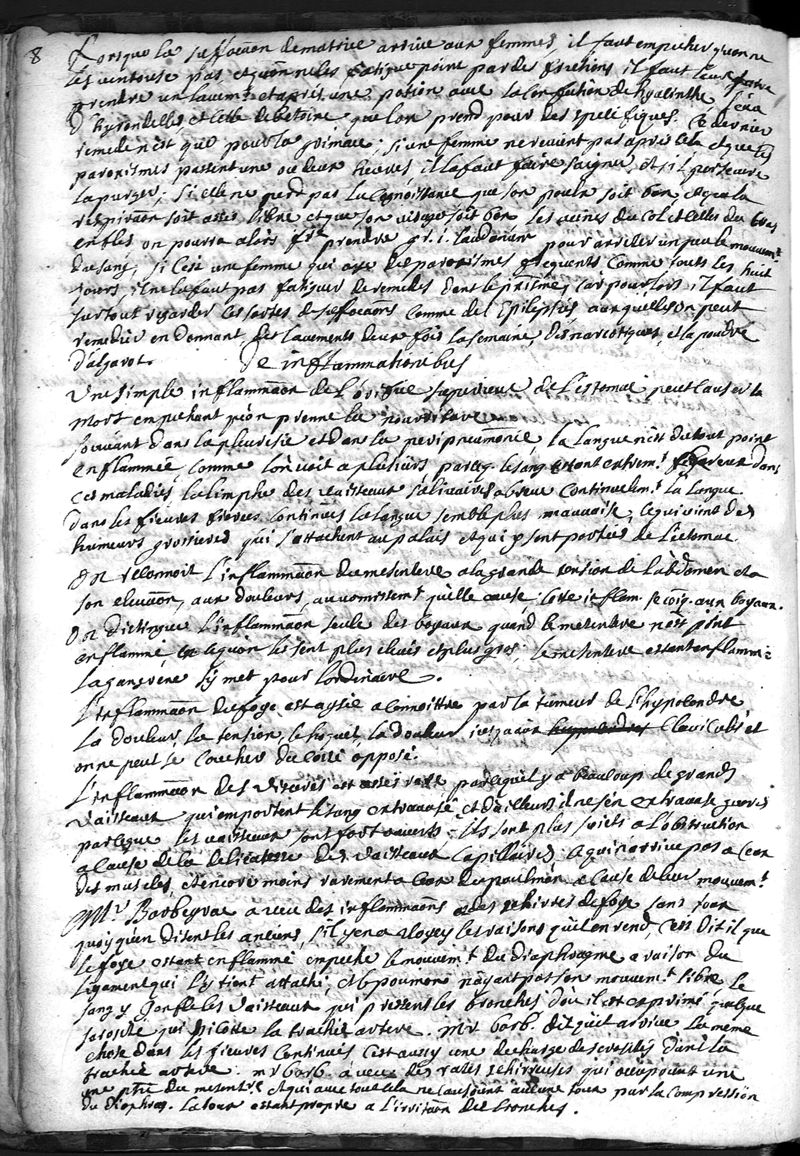 8
Lorsque la suffocaōn de matrice arrive aux femmes, il faut empecher qu'on ne
les ventouse pas et quon ne les fatigue point par des frictions, il faut leur faire
prendre un lavem.t et apres une potion avec la confection de hyacinthe, l'eau
d'hyrondelles et celle de betoine que lon prend pour des specifiques. ce dernier
remede n'est que pour la grimace; si une femme ne revient pas apres cela et que les
paroxismes passent une ou deux heures il la faut faire saigner, et s'il persevere
la purger; si elle ne perd pas la connoissance que son pouls soit bon, et que la
respiraōn soit assés libre et que son visage soit bon les veines du col et celles du bras
enflés on pourra alors fre prendre gr. i. laudanum pour arreter un peu le mouvem.t
du sang; si c'est une femme qui aye des paroxismes frequents comme touts les huit
jours, il ne la faut pas fatiguer de remedes dans le paroxisme, car pour lors il faut
surtout regarder ces sortes de suffocaōns comme des Epilepsies auxquelles on peut
remedier en donnant des lavements deux fois la semaine des narcotiques et la poudre
d'algarot.
De inflammationibus
Une simple inflammaōn de l'orifice superieur de l'estomac peut causer la
mort empechant qu'on prenne la nourriture
souvant dans la pleuresie et dans la peripneumonie, la langue n'est du tout point
enflammée, comme lon voit a plusieurs parceq. le sang estant extrem.t sereux dans
ces maladies la limphe des vaisseaux salivaires abreuve continuellem.t la langue.
dans les fievres continues la langue semble plus mauvaise, ce qui vient des
humeurs grossieres qui s'attachent au palais et qui y sont portées de l'estomac.
On reconnoit l'inflammaōn du mesentere a la grande tension de l'abdomen et a
son elevaōn, aux douleurs, au vomissem.t quelle cause; cette inflam. se coig. aux boyaux.
On distingue l'inflammaōn seule des boyaux quand le mesentere n'est point
enflammé en ce quon les sent plus elevés et plus gros; le mesentere estant enflammé
la gangrene s'y met pour l'ordinaire.
L'inflammaōn du foye est aysée a connoittre par la tumeur de l'hypocondre,
la douleur, la tension, le hoquet, la douleur jusqu'aux hypocondres claviculés et
on ne peut se coucher du coté opposé.
L'inflammaōn des visceres est assés rare parcequ'il y a beaucoup de grands
vaisseaux qui emportent le sang extravasé et d'ailleurs il ne s'en extravase gueres
parceque les vaisseaux sont fort ouverts - ils sont plus sujets a l'obstruction
a cause de la delicatesse des vaisseaux capillaires, ce qui n'arrive pas a ceux
des muscles et encore moins rarement a ceux du poulmon a cause de leur mouvem.t
M.r Barbeyrac a veu des inflammaōns et des schirres de foye sans toux
quoy qu'en disent les anciens, s'il y en a voyez les raisons qu'il en rend, c'est dit il que
le foye estant enflammé empeche le mouvem.t du diaphragme a raison du
ligament qui l'y tient attaché, et le poumon n'ayant pas son mouvem.t libre le
sang y gonfle les vaisseaux qui pressent les bronches d'ou il est exprimé quelque
serosité qui picotte la trachée artere. Mr. barb. dit qu'il arrive la meme
chose dans les fievres continues c'est aussy une decharge de serosités dans la
trachée artere. mr barb. a veu des rates schirreuses qui occupoint une
une ptie du mesentere et qui avec tout cela ne causoient aucune toux par la compression
du diaphrag. la toux estant propre a l'irritaōn des bronches.